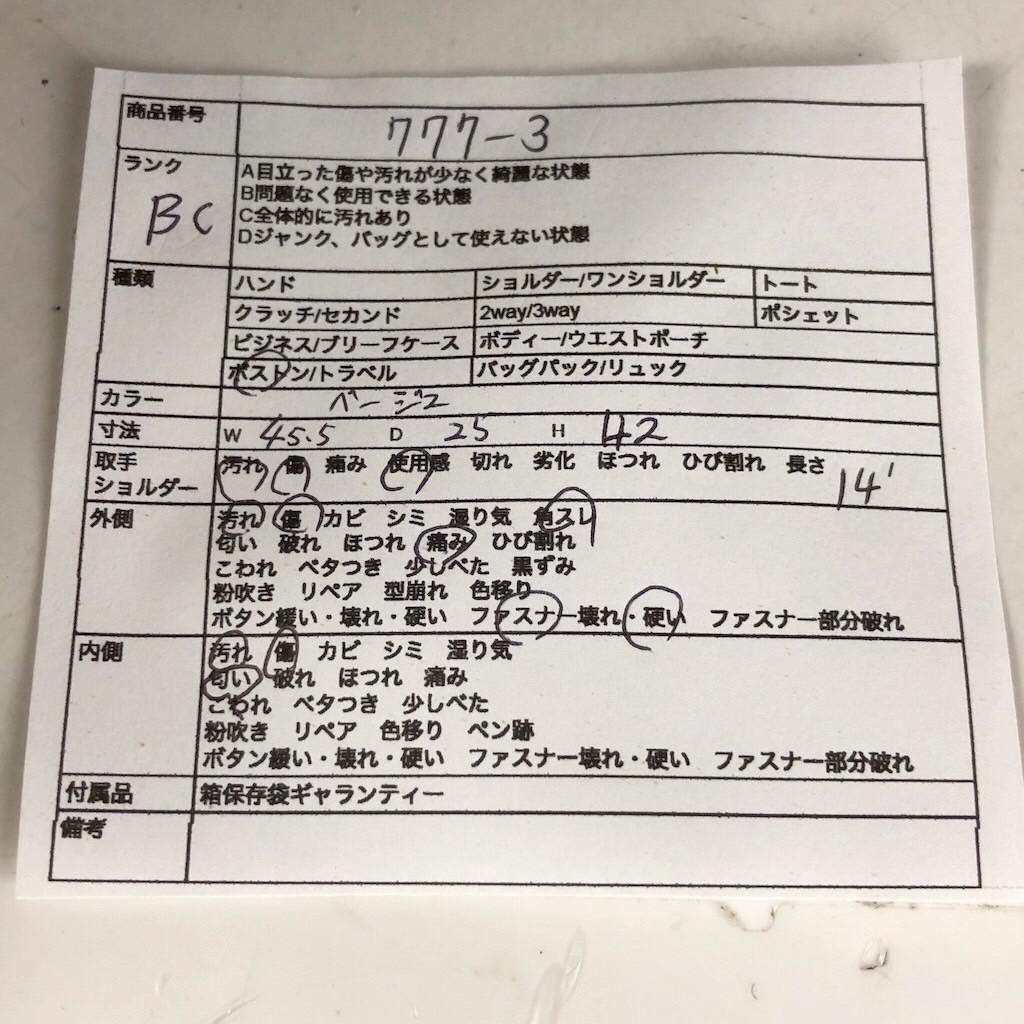 商品番号 777-3
ランク BC
A目立った傷や汚れが少なく綺麗な状態
B問題なく使用できる状態
C全体的に汚れあり
Dジャンク、バッグとして使えない状態
種類 ハンド ショルダー/ワンショルダー トート
クラッチ/セカンド 2way/3way ポシェット
ビジネス/ブリーフケース ボディー/ウエストポーチ
ボストン/トラベル バッグパック/リュック
カラー ベージュ
寸法 W 45.5 D 25 H 42
取手 汚れ 傷 痛み 使用感 切れ 劣化 ほつれ ひび割れ 長さ 14
ショルダー
外側 汚れ 傷 カビ シミ 湿り気 角スレ
匂い 破れ ほつれ 痛み ひび割れ
こわれ ベタつき 少しべた 黒ずみ
粉吹き リペア 型崩れ 色移り
ボタン緩い・壊れ・硬い ファスナー壊れ・硬い ファスナー部分破れ
内側 汚れ 傷 カビ シミ 湿り気
匂い 破れ ほつれ 痛み
こわれ ベタつき 少しべた
粉吹き リペア 色移り ペン跡
ボタン緩い・壊れ・硬い ファスナー壊れ・硬い ファスナー部分破れ
付属品 箱保存袋ギャランティー
備考